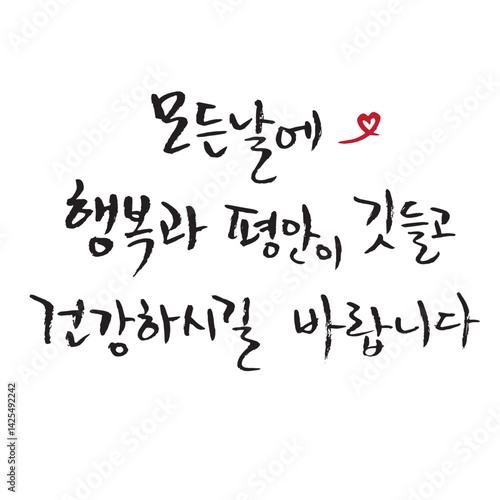 모든날에
행복과 평안이 깃들고
건강하시길 바랍니다
Adobe Stock | #1425492242